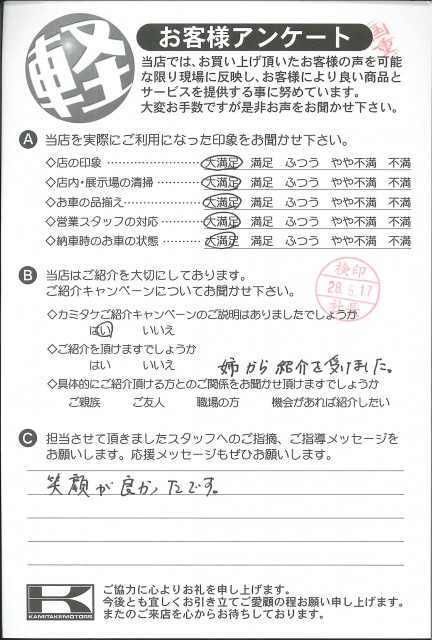 軽
お客様アンケート
当店では、お買い上げ頂いたお客様の声を可能
な限り現場に反映し、お客様により良い商品と
サービスを提供する事に努めています。
大変お手数ですが是非お声をお聞かせ下さい。
A 当店を実際にご利用になった印象をお聞かせ下さい。
◇店の印象 ……………………… 大満足 満足 ふつう やや不満 不満
◇店内・展示場の清掃 ………… 大満足 満足 ふつう やや不満 不満
◇お車の品揃え ………………… 大満足 満足 ふつう やや不満 不満
◇営業スタッフの対応 ………… 大満足 満足 ふつう やや不満 不満
◇納車時のお車の状態 ………… 大満足 満足 ふつう やや不満 不満
B 当店はご紹介を大切にしております。
ご紹介キャンペーンについてお聞かせ下さい。
検印
28.5.17
社長
◇カミタケご紹介キャンペーンのご説明はありましたでしょうか
はい いいえ
◇ご紹介を頂けますでしょうか
はい いいえ 姉から紹介を受けました。
◇具体的にご紹介頂ける方とのご関係をお聞かせ頂けますでしょうか
ご親族 ご友人 職場の方 機会があれば紹介したい
C 担当させて頂きましたスタッフへのご指摘、ご指導メッセージを
お願いします。応援メッセージもぜひお願いします。
笑顔が良かったです。
K
KAMITAKEMOTORS
ご協力に心よりお礼を申し上げます。
今後とも宜しくお引き立てご愛顧の程お願い申し上げます。
またのご来店を心からお待ちしております。